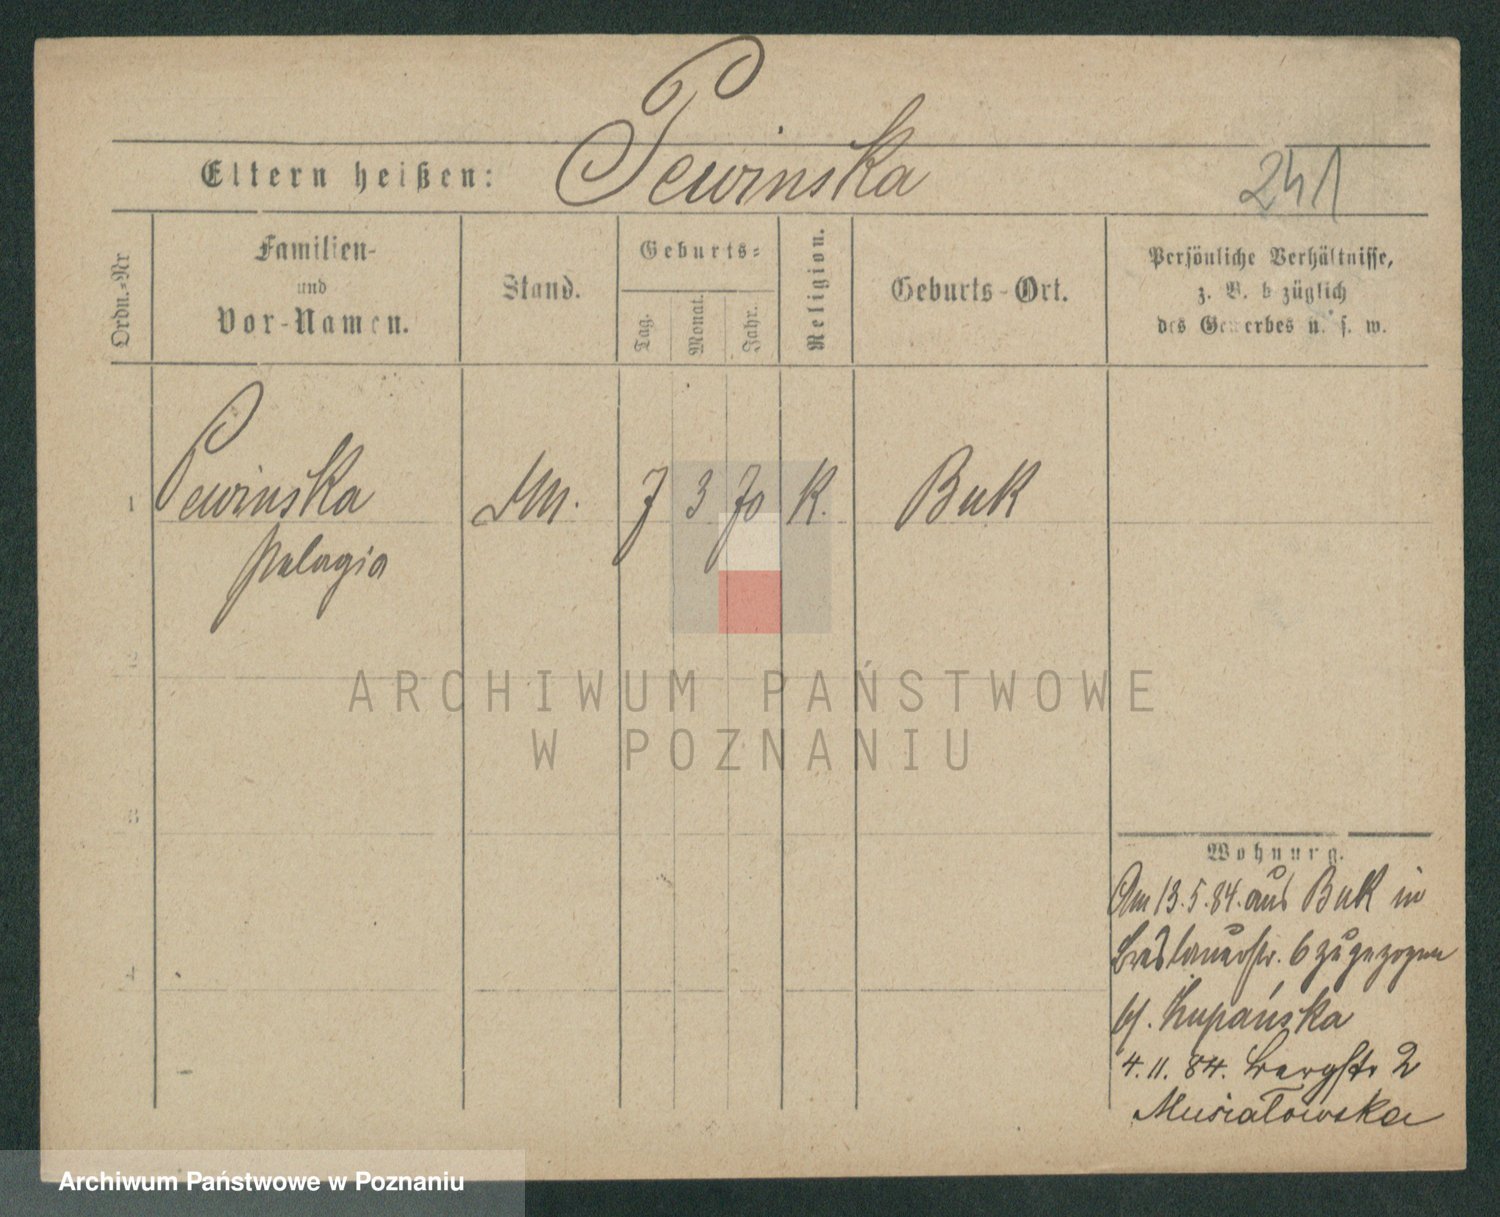 Eltern heißen: Pewinska
241
Ordn.-Nr
Familien-
und
Vor-Namen.
Stand.
Geburts-
Tag.
Monat.
Jahr.
Religion.
Geburts-Ort.
Persönliche Verhältnisse,
z. B. bezüglich
des Gewerbes u. s. w.
1 Pewinska 7 3 70 K. Buk
Pelagia
2
ARCHIWUM PAŃSTWOWE
W POZNANIU
3
Wohnung.
Am 13.5.84. aus Buk in
Breslauerstr. 6 zugezogen
4
b/. Zupańska
4.11.84. Bergstr 2
Musiałowska
Archiwum Państwowe w Poznaniu